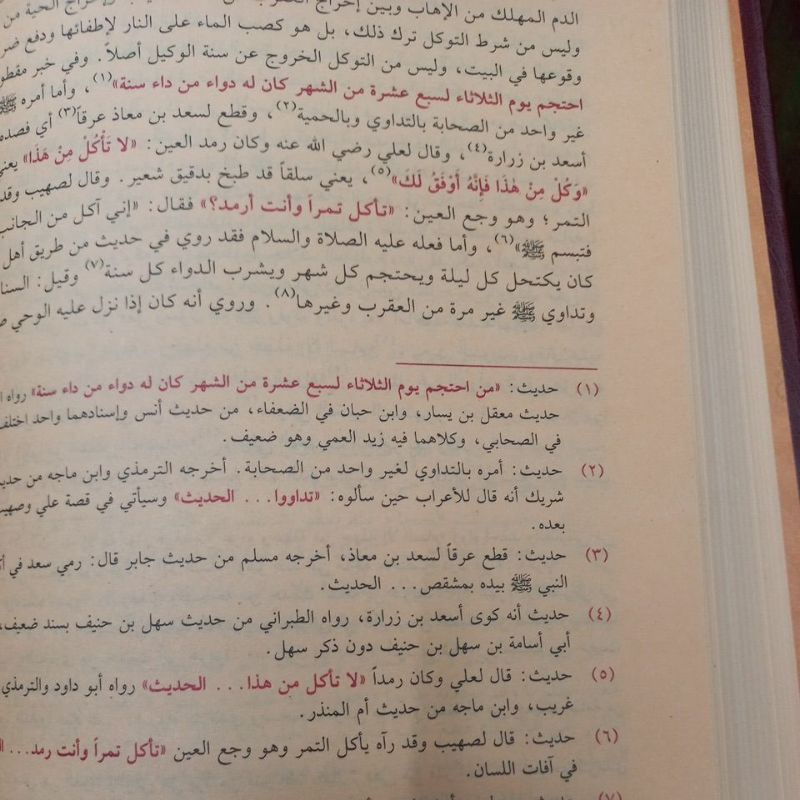 الدم المهلك من الإهاب وبين إخراج
وليس من شرط التوكل ترك ذلك، بل هو كصب الماء على النار لإطفائها ودفع
وقوعها في البيت، وليس من التوكل الخروج عن سنة الوكيل أصلاً. وفي خبر
احتجم يوم الثلاثاء لسبع عشرة من الشهر كان له دواء من داء سنة»(١)، وأما أمره ﷺ
غير واحد من الصحابة بالتداوي وبالحمية(٢)، وقطع لسعد بن معاذ عرقاً(٣) أي فصده
أسعد بن زرارة(٤)، وقال لعلي رضي الله عنه وكان رمد العين: «لا تَأْكُلْ مِنْ هَذَا» يعني
«وَكُلْ مِنْ هٰذَا فَإِنَّهُ أَوْفَقُ لَكَ»(٥)، يعني سلقاً قد طبخ بدقيق شعير. وقال لصهيب وقد
التمر؛ وهو وجع العين: «تأكل تمراً وأنت أرمد؟» فقال: «إني آكل من الجانب
فتبسم ﷺ»(٦)، وأما فعله عليه الصلاة والسلام فقد روي في حديث من طريق أهل
كان يكتحل كل ليلة ويحتجم كل شهر ويشرب الدواء كل سنة(٧) وقيل: السنا
وتداوي ﷺ غير مرة من العقرب وغيرها(٨). وروي أنه كان إذا نزل عليه الوحي
(١) حديث: «من احتجم يوم الثلاثاء لسبع عشرة من الشهر كان له دواء من داء سنة» رواه
حديث معقل بن يسار، وابن حبان في الضعفاء، من حديث أنس وإسنادهما واحد اختلف
في الصحابي، وكلاهما فيه زيد العمي وهو ضعيف.
(٢) حديث: أمره بالتداوي لغير واحد من الصحابة. أخرجه الترمذي وابن ماجه من حديث
شريك أنه قال للأعراب حين سألوه: «تداووا... الحديث» وسيأتي في قصة علي وصهيب
بعده.
(٣) حديث: قطع عرقاً لسعد بن معاذ، أخرجه مسلم من حديث جابر قال: رمي سعد في
النبي ﷺ بيده بمشقص... الحديث.
(٤) حديث أنه كوى أسعد بن زرارة، رواه الطبراني من حديث سهل بن حنيف بسند ضعيف،
أبي أسامة بن سهل بن حنيف دون ذكر سهل.
(٥) حديث: قال لعلي وكان رمداً «لا تأكل من هذا... الحديث» رواه أبو داود والترمذي
غريب، وابن ماجه من حديث أم المنذر.
(٦) حديث: قال لصهيب وقد رآه يأكل التمر وهو وجع العين «تأكل تمراً وأنت رمد...
في آفات اللسان.
(٧)